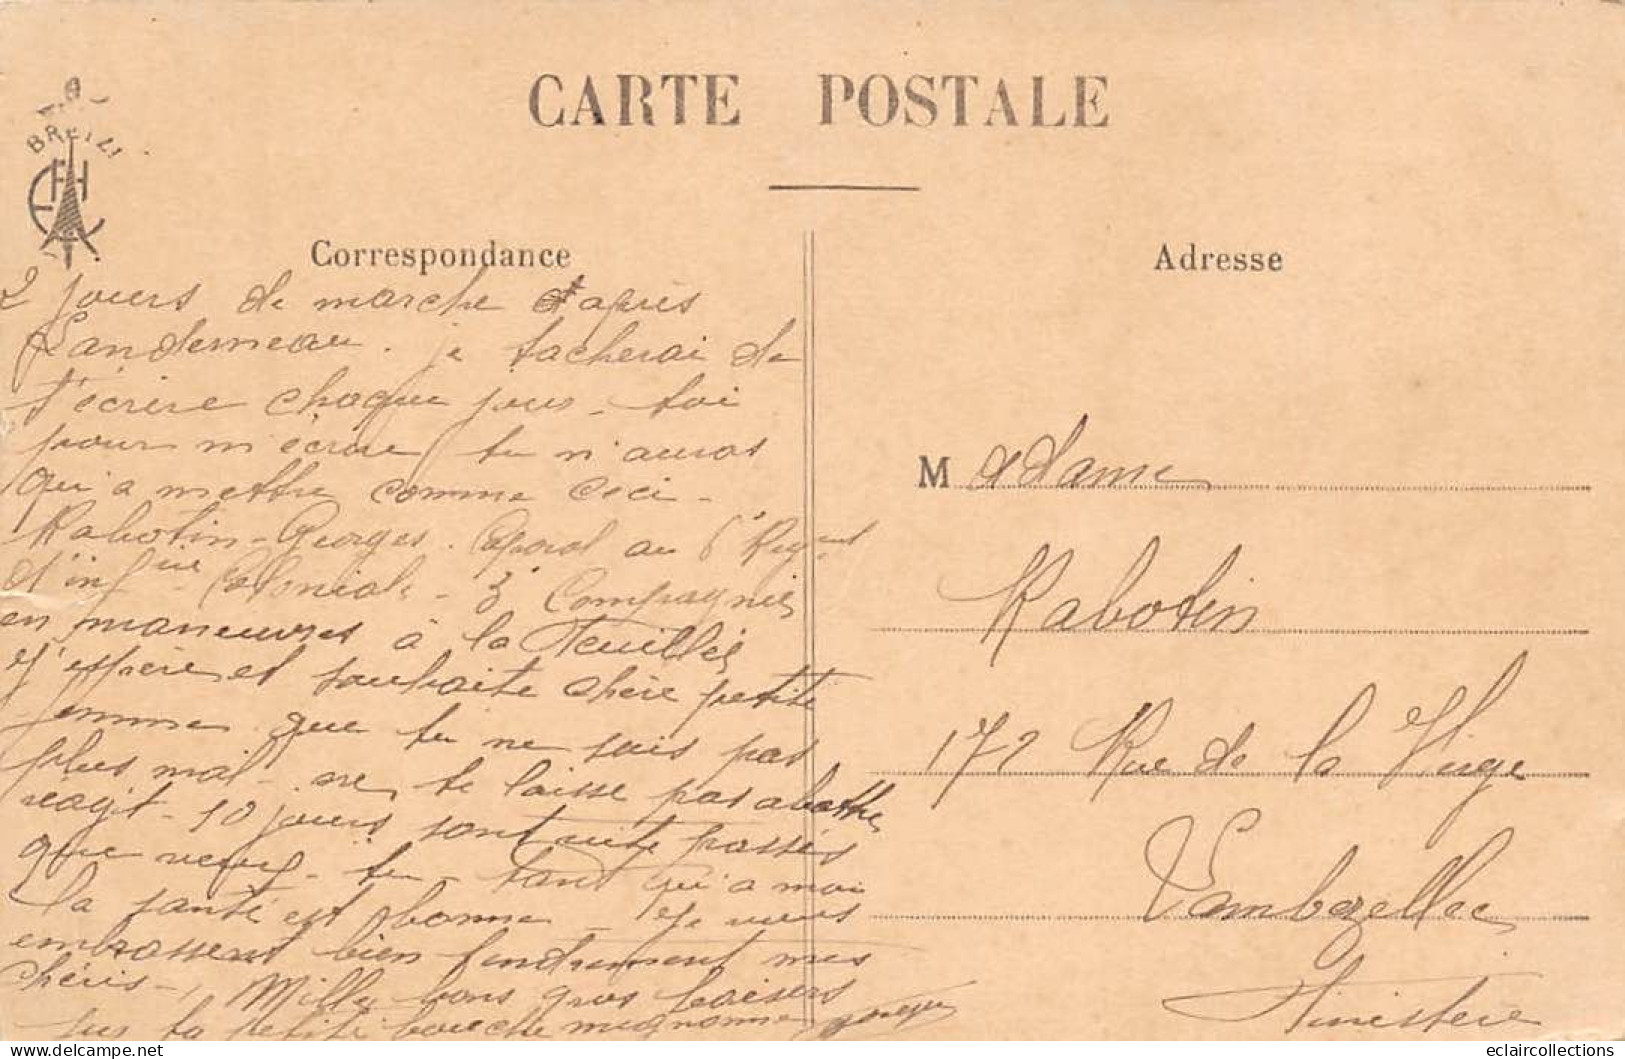 CARTE POSTALE
BREIZ
Correspondance
Adresse
2 jours de marche d'après
Landerneau. je tacherai de
t'écrire chaque jour - toi
pour m'écrire tu n'auras
qu'a mettre comme ceci -
Rabotin - Georges. Caporal au 6e Regiment
d'infrie Coloniale - 3e Compagnie
en manœuvres à la Feuillée
J'espère et souhaite chère petite
femme que tu ne sois pas
plus mal - ne te laisse pas abattre
reagit - 10 jours sont vite passés
que veux - tu - tant qu'a moi
la santé est bonne - Je vous
embrassent bien tendrement mes
chéris -, Mille bons gros baisers
sur ta petite bouche mignonne Georges
Madame
Rabotin
172 Rue de la Vierge
Lambezellec
Finistère
eclaircollections